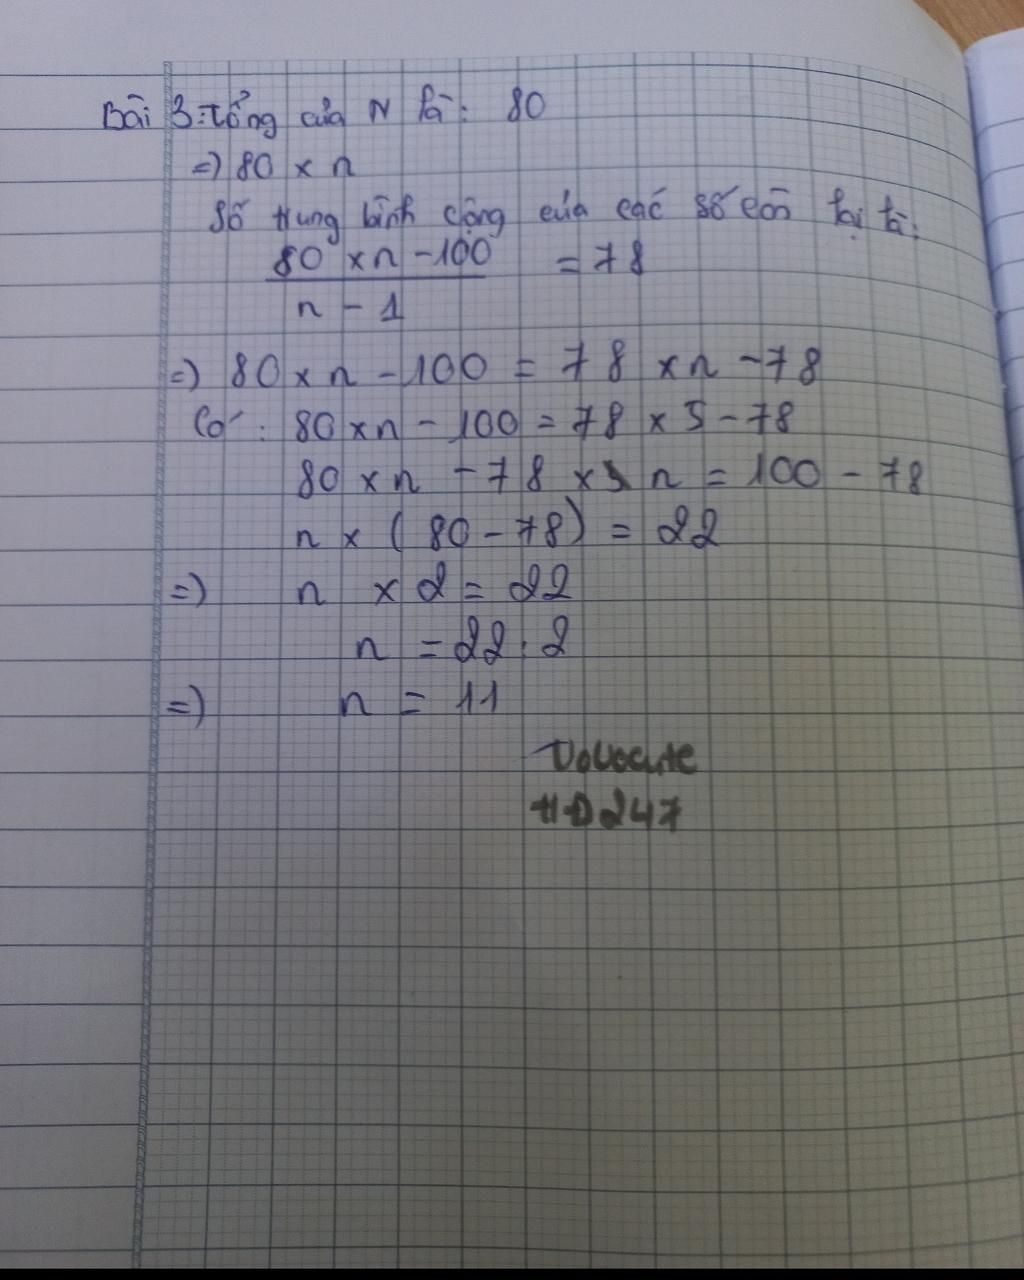 Bài 3: Tổng của N là: 80
=) 80 x n
Số trung bình cộng của các số còn lại là:
80 x n - 100 = 78
n - 1
=) 80 x n - 100 = 78 x n - 78
Có: 80 x n - 100 = 78 x 5 - 78
80 x n - 78 x n = 100 - 78
n x ( 80 - 78) = 22
=) n x 2 = 22
n = 22 : 2
=) n = 11
HD247